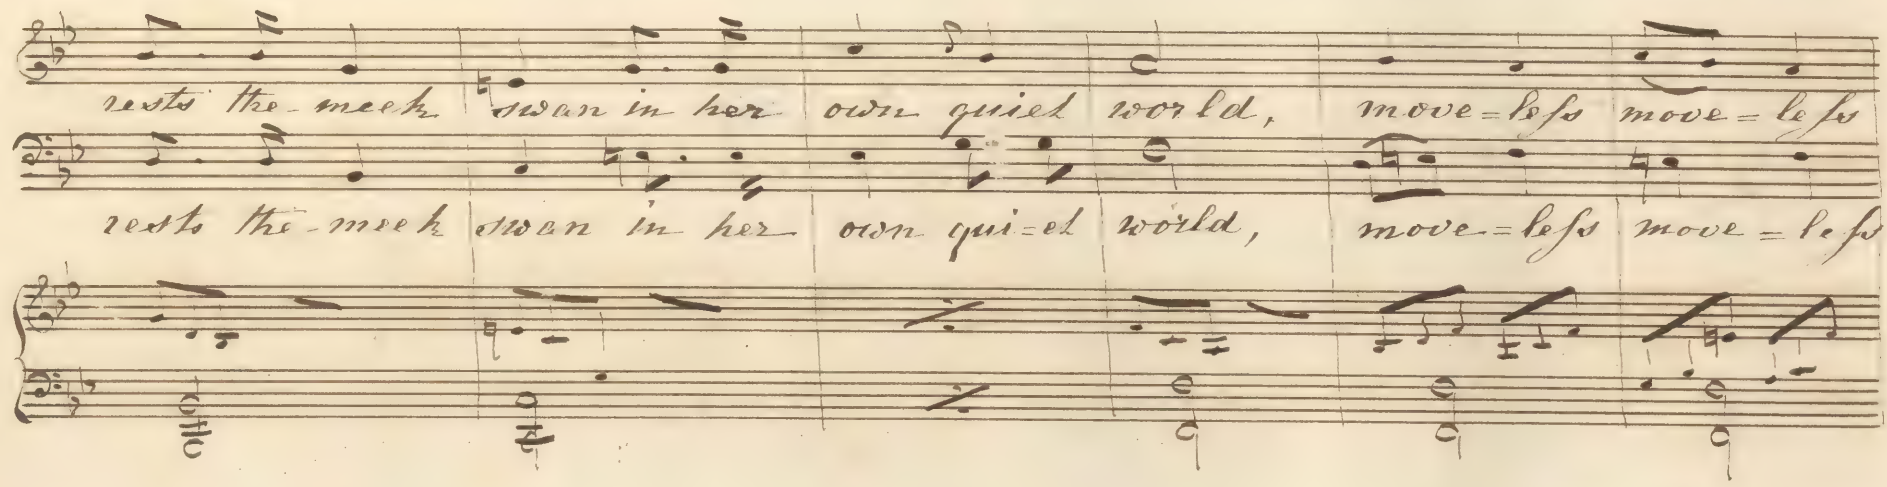 rests the-meek swan in her own quiet world, move=leſs move=leſs
rests the-meek swan in her own qui=et world, move=leſs move=leſs